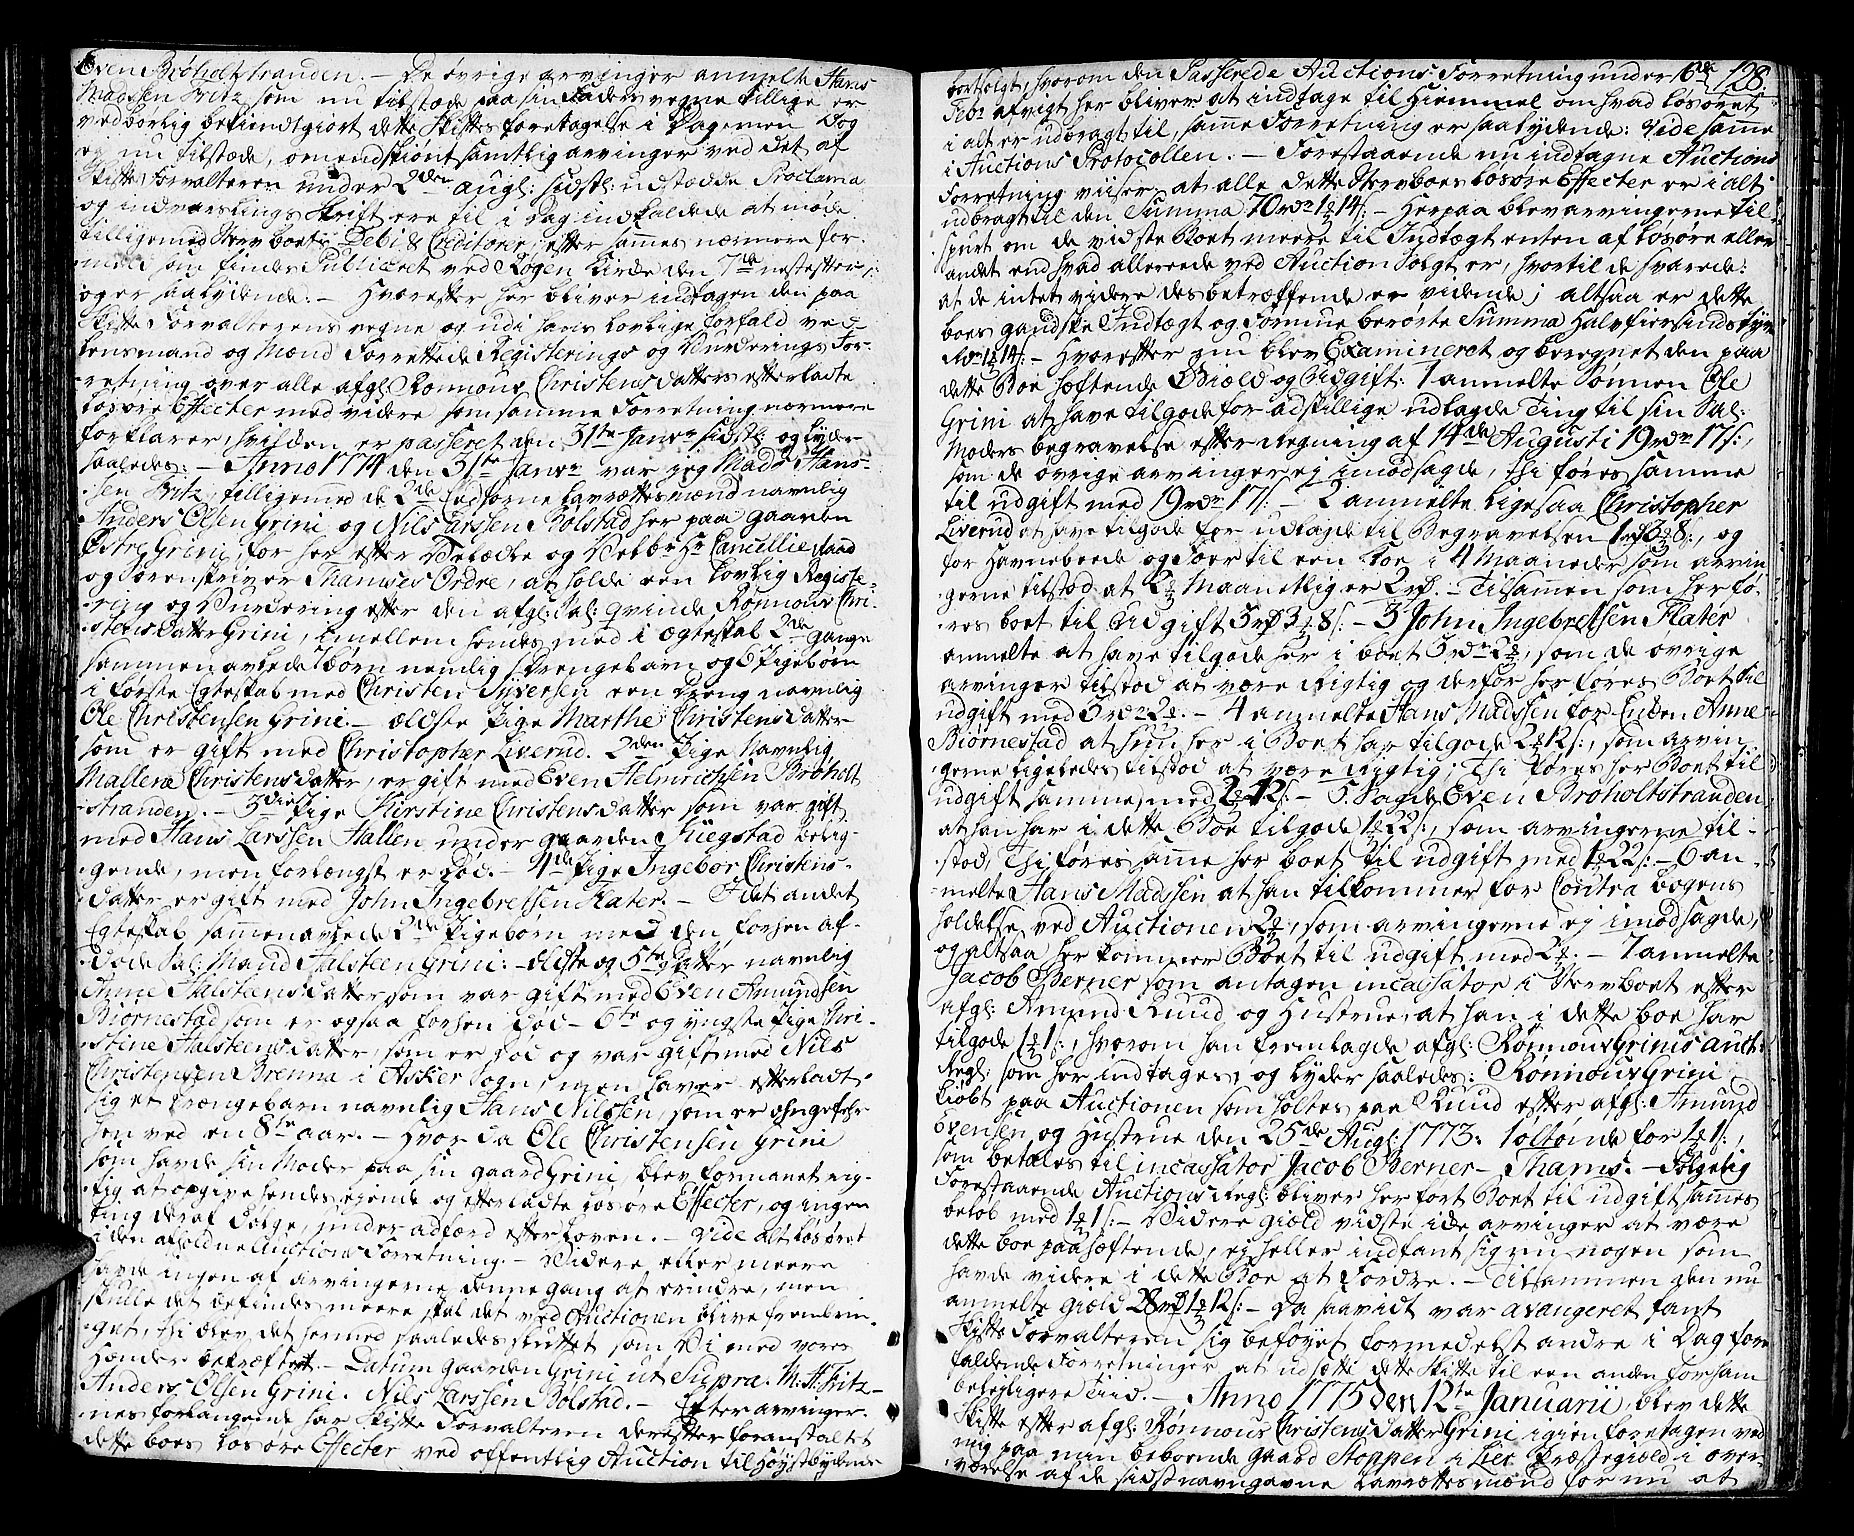 Even Brøholtstranden. — De øvrige arvinger anmelte Hans
Madssen Fritz som nu tilstæde paa sin Faders vegne tillige er
vedbørlig bekiendtgiort dette Skiftes foretagelse i Dag men Dog
ej nu tilstæde, omendskiønt samtlig arvinger ved det af
Skifte Forvalteren under 2den Augl: sidstl: udstædde Proclama
og indvarslings Skrift ere til i Dag indkaldede at møde
tilligemed Stervboets Debi & Creditorer, efter sammes nærmere for-
meld som findes Publiceret ved Røgen Kirke den 7de nestefter,
og er saalydende. — Hvorefter her bliver indtagen den paa
Skifte Forvalterens vegne og udi hans lovlige forfald ved
Lensmand og Mænd Forrettede Registerings og Vurderings For-
retning over alle afgl: Rønnous Christensdatters efterladte
løsøre Effecter med videre som samme Forretning nærmere
forklarer, hvilken er passeret den 31te Janr: sidstl: og lyder
saaledes: — Anno 1774 den 31te Janr: var jeg Mads Hans-
sen Fritz, tilligemed de 2de Eedsorne Lavrættesmænd navnlig
Anders Olsen Grini og Nils Larssen Bølstad her paa gaarden
Østre Grini, for her efter Velædle og Velbr: Hr Cancellie Raad
og Sorenskriver Thamses Ordre, at holde een lovlig Registe-
ring og Vurdering efter den afgl: Sal: qvinde Rønnous Chri-
stensdatter Grini, imellem hendes med i ægteskab 2de gange
sammen avlede 7 børn nemlig 1 Drengebarn og 6 Pigebørn
i første Egteskab med Christen Syversen een Dreng navnlig
Ole Christensen Grini. — ældste Pige Marthe Christensdatter
som er gift med Christopher Liverud. 2den Pige Navnlig
Mallene Christensdatter, er gift med Even Helmrichsen Brøholt
stranden. — 3die Pige Kirstine Christensdatter som var gift
med Hans Larssen Hallen under gaarden Kiegstad belig-
gende, men forlængst er død. — 4de Pige Ingebor Christens-
datter er gift med John Ingebretsen Flater. — I det andet
Egteskab sammenavlede 2de Pigebørn med den forhen af-
døde Sal: Mand Halsteen Grini: — ældste og 5te Datter navnlig
Anne Halsteensdatter som var gift med Even Amundsen
Biørnestad som er ogsaa forhen død — 6te og yngste Pige Chri-
stine Halsteensdatter, som er død og var gift med Nils
Christensen Brenna i Asker Sogn, men haver efterladt
sig et Drængebarn navnlig Hans Nilssen, som er ohngefehr
hen ved en 8te aar. — Hvor da Ole Christensen Grini
som havde sin Moder paa sin gaard Grini, blev formanet rig-
tig at opgive hendes eiende og efterladte løsøre Effecter, og ingen
ting deraf dølge, under adfærd efter loven. — Vide alt løsøret
i den afholdne Auctions Forretning. — Videre eller meere
havde ingen af arvingerne denne gang at erindre, men
skulle det befindes meere skal det ved Auctionen blive frembrin-
get, thi blev det hermed saaledes sluttet som Vi med vore
Hænder bekræfter. — Datum gaarden Grini ut Supra. M: H: Fritz —
Anders Olsen Grini. Nils Larssen Bølstad. — Efter arvinger-
nes forlangende har Skifte Forvalteren derefter foranstaltet
dette boes løsøre Effecter ved offentlig Auction til Høystbydende
128.
bortsolgt, hvorom den Passerede Auctions Forretning under 16de
Febr: afvigt her bliver at indtage til Hiemmel om hvad løsøret
i alt er udbragt til, samme Forretning er saalydende: Vide samme
i Auctions Protocollen. — Forestaaende nu indtagne Auctions
Forretning viiser, at alle dette Stervboes løsøre Effecter er i alt
udbragt til den Summa 70 rdr 1 14 s: — Herpaa blev arvingerne til-
spurt om de vidste Boet meere til Indtægt enten af løsøre eller
andet end hvad allereede ved Auction solgt er, hvortil de svarede:
at de intet videre des betræffende er vidende; altsaa er dette
boes gandske Indtægt og Formue berørte Summa Halvfiersindstyve
Rdr 1 14 s: — Hvorefter nu blev Examineret og beregnet den paa
dette Boe hæftende Giæld og Udgift: 1 anmelte Sønnen Ole
Grini at have tilgode for adskillige udlagde Ting til sin Sal:
Moders begravelse efter Regning af 14de Augusti 19 rdr 17 s:,
som de øvrige arvinger ej imodsagde, thi føres samme
til udgift med 19 rdr 17 s. — 2 anmelte ligesaa Christopher
Liverud at have tilgode for udlagde til Begravelsen 1 rd 3 8 s:, og
for Havnebeede og Foer til een Koe i 4 Maaneder som arvin
gerne tilstod at 2 Maanetlig er 2 rd. — Tilsamen som her fø-
res boet til Udgift 3 rd 3 8 s: — 3 John Ingebretsen Flater
anmelte at have tilgode her i boet 3 rdr 2, som de øvrige
arvinger tilstod at være Rigtig og derfor her føres Boet til
udgift med 3 rdr 2. — 4 anmelte Hans Madssen for Enken Anne
Biørnestad at hun her i Boet har tilgode 2 12 s:, som arvin
gerne ligeledes tilstod at være Rigtig; Thi føres her Boet til
udgift samme med 2 12 s: — 5. Sagde Even Brøholtstranden,
at han har i dette Boe tilgode 1 22 s:, som arvingerne til-
stod, Thi føres same her boet til udgift med 1 22 s: — 6 an-
melte Hans Madssen at han tilkommer for Contra bogens
holdelse ved Auctionen 2, som arvingerne ej imodsagde,
og altsaa her kommer Boet til udgift med 2. — 7 anmelte
Jacob Berner som antagen incassator i Stervboet efter
afgl: Amund Ruud og Hustrue, at han i dette boe har
tilgode 1 1 s:, hvorom han fremlagde afgl: Rønnous Grinis auct:
Regl: som her indtages, og lyder saaledes: Rønnous Grini
kiøbt paa Auctionen som holtes paa Ruud efter afgl: Amund
Evensen og Hustrue den 25de Augl: 1773. 1 øltønde for 1 1 s:,
som betales til incassator Jacob Berner — Thams. — Følgelig
Forestaaende Auctions Regl: bliver her ført Boet til udgift sammes
beløb med 1 1 s: — Videre giæld vidste icke arvinger at være
dette boe paahæftende, ej heller indfant sig nu nogen som
havde videre i dette Boe at Fordre. — Tilsammen den nu
anmelte giæld 28 rd 1 12 s: — Da saavidt var avangeret fant
Skifte Forvalteren sig beføyet formedelst andre i Dag fore
faldende Forretninger at udsætte dette Skifte til een anden forsam
beleiligere Tiid. — Anno 1775 den 12te Januarii, blev dette
Skifte efter afgl: Rønnous Christensdatter Grini igien foretagen ved
mig paa min beboende gaard Stoppen i Lier Præstegield i over
værelse af de sidstnavngivne Lavrættesmænd for nu at